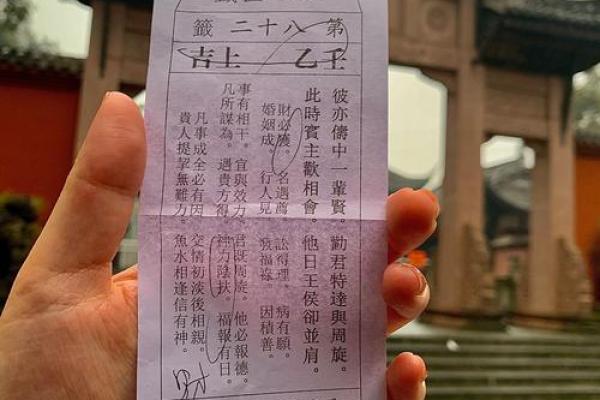 第八十二籤
壬乙 上吉
彼亦儔中一輩賢。勸君特達與周旋。
此時賓主歡相會。他日王侯卻並肩。
財必獲。名遇薦。訟得理。病有願。
婚姻成。行人見。福。因積善。
事有相干。宜與效力。既周旋。他必報德。
凡所謀為。遇貴方得。神力陰扶。福報有日。
凡事成全必有因。交情初淡後相親。
貴人提挈無難力。魚水相逢信有神。